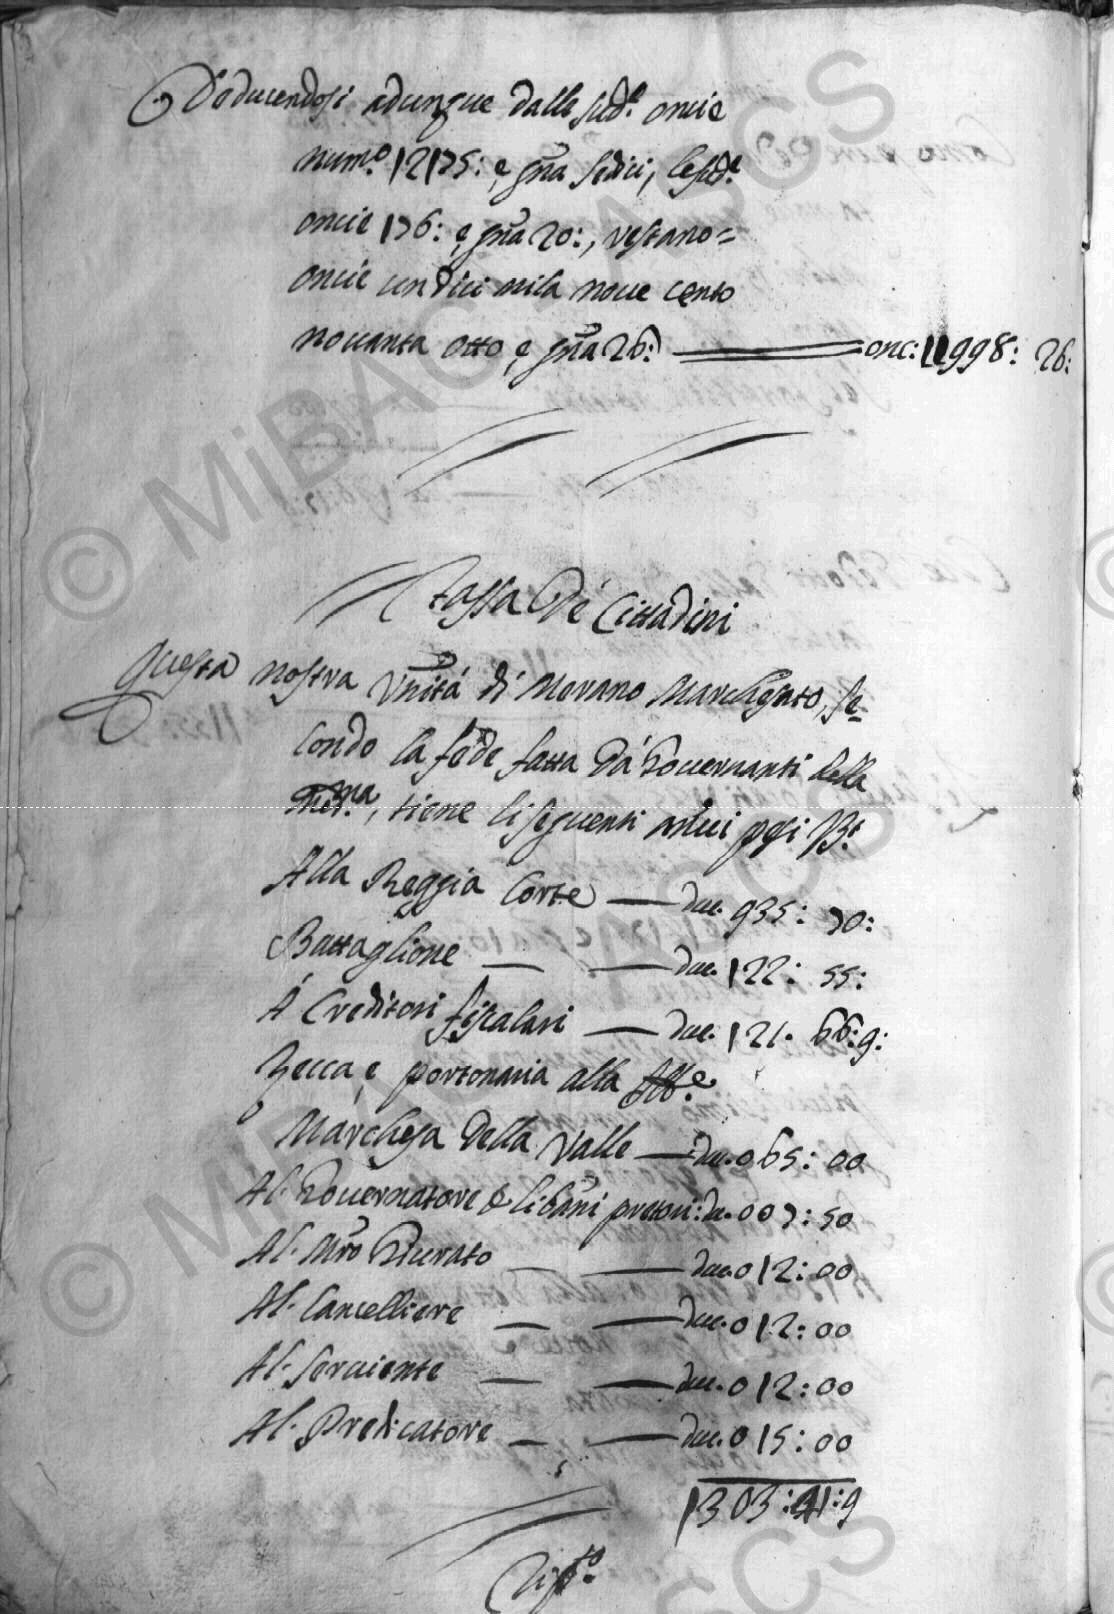 Deducendosi adunque dalle sud.e oncie
num.o 12175: e gña sedici, le sud.e
oncie 176: e gña 20:, restano=
oncie undici mila nove cento
novanta otto, e gña 26: onc: 11998: 26:
Tassa De' Cittadini
Questa nostra Vñità di Morano Marchesato, se=
condo la fede fatta da' Governanti della
med.ma, tiene li seguenti annui pesi
Alla Reggia Corte — duc. 935: 70:
Battaglione — — duc. 122: 55:
A' Creditori fiscalari — duc. 121. 66:9:
Zecca, e portonaria alla Ill.e
Marchesa della Valle — duc. 065: 00
Al Governatore e libani pretori: du. 007: 50
Al Mrõ Giurato — — duc. 012: 00
Al Cancelliere — — duc. 012: 00
Al Serviente — — duc. 012: 00
Al Predicatore — — duc. 015: 00
1303: 41: 9
© MiBAC - ASCS
© MiBAC - ASCS